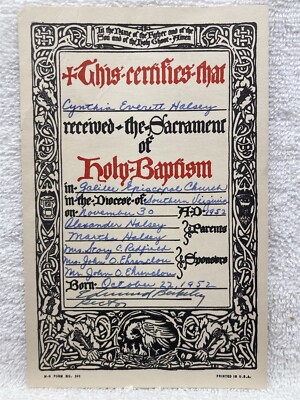 In the Name of the Father and of the
Son and of the Holy Ghost · Amen
This · certifies · that
Cynthia Everett Halsey
received · the · Sacrament
of
Holy · Baptism
in · Galilee Episcopal Church
in · the · Diocese · of · Southern Virginia
on · November 30 A · D · 1952
Alexander Halsey
Martha Halsey Parents
Mrs. Story C. Pedfield
Mrs. John O. Sponsors
Mr. John O.
Born · October 22, 1952
Rector
M-G FORM NO. PRINTED IN U.S.A.